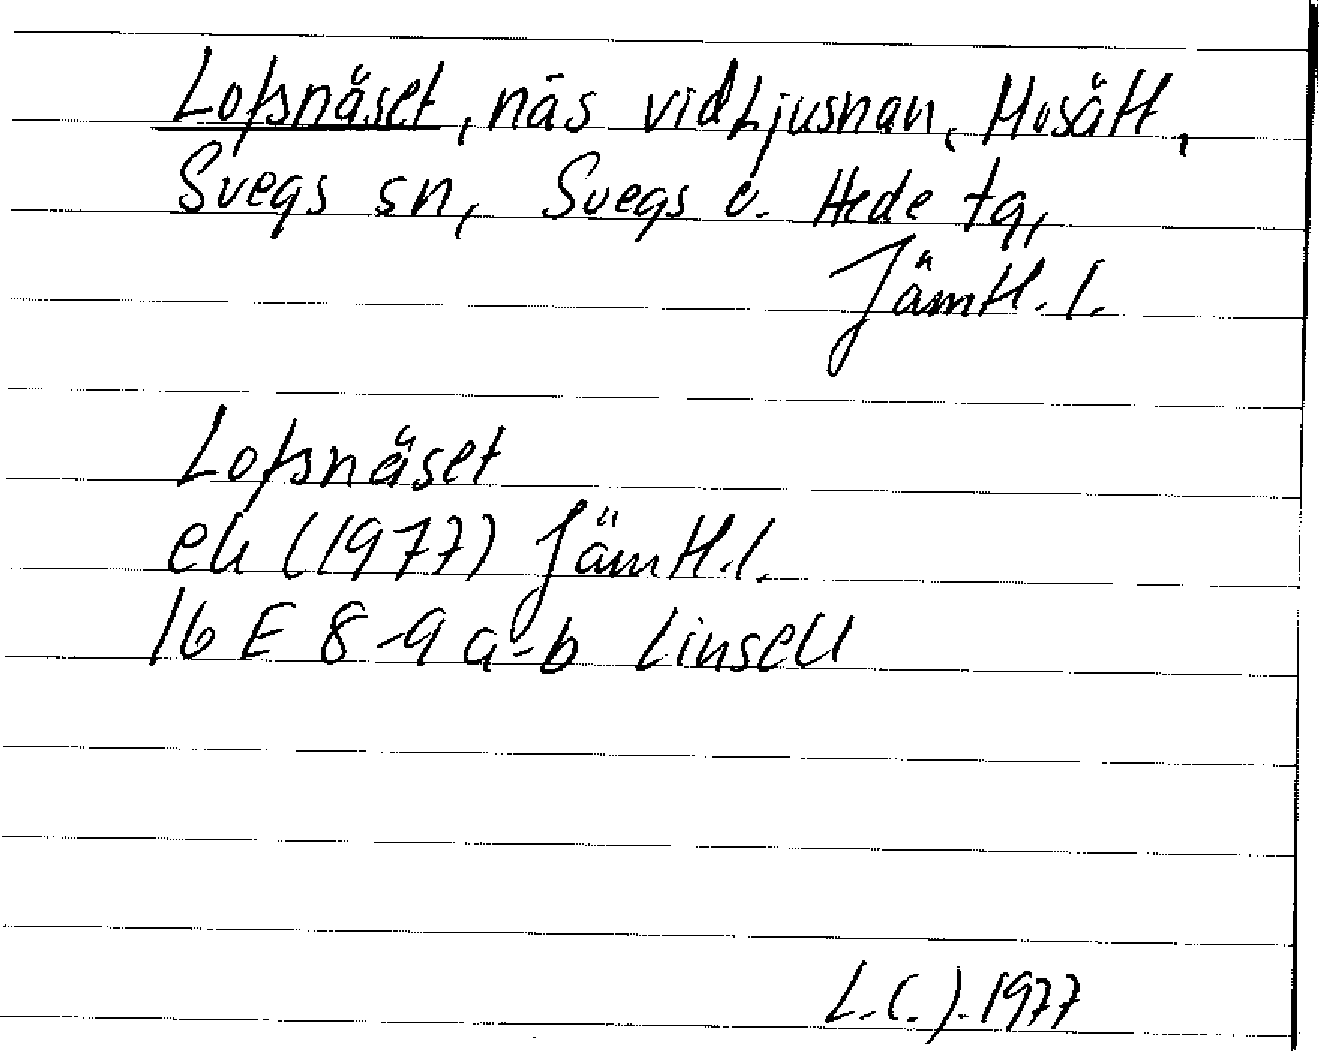 Lofsnäset, näs vid Ljusnan, Mosätt,
Svegs sn, Svegs o. Hede tg,
Jämtl. l.
Lofsnäset
ek (1977) Jämtl. l.
16 E 8-9 a-b Linsell
1977